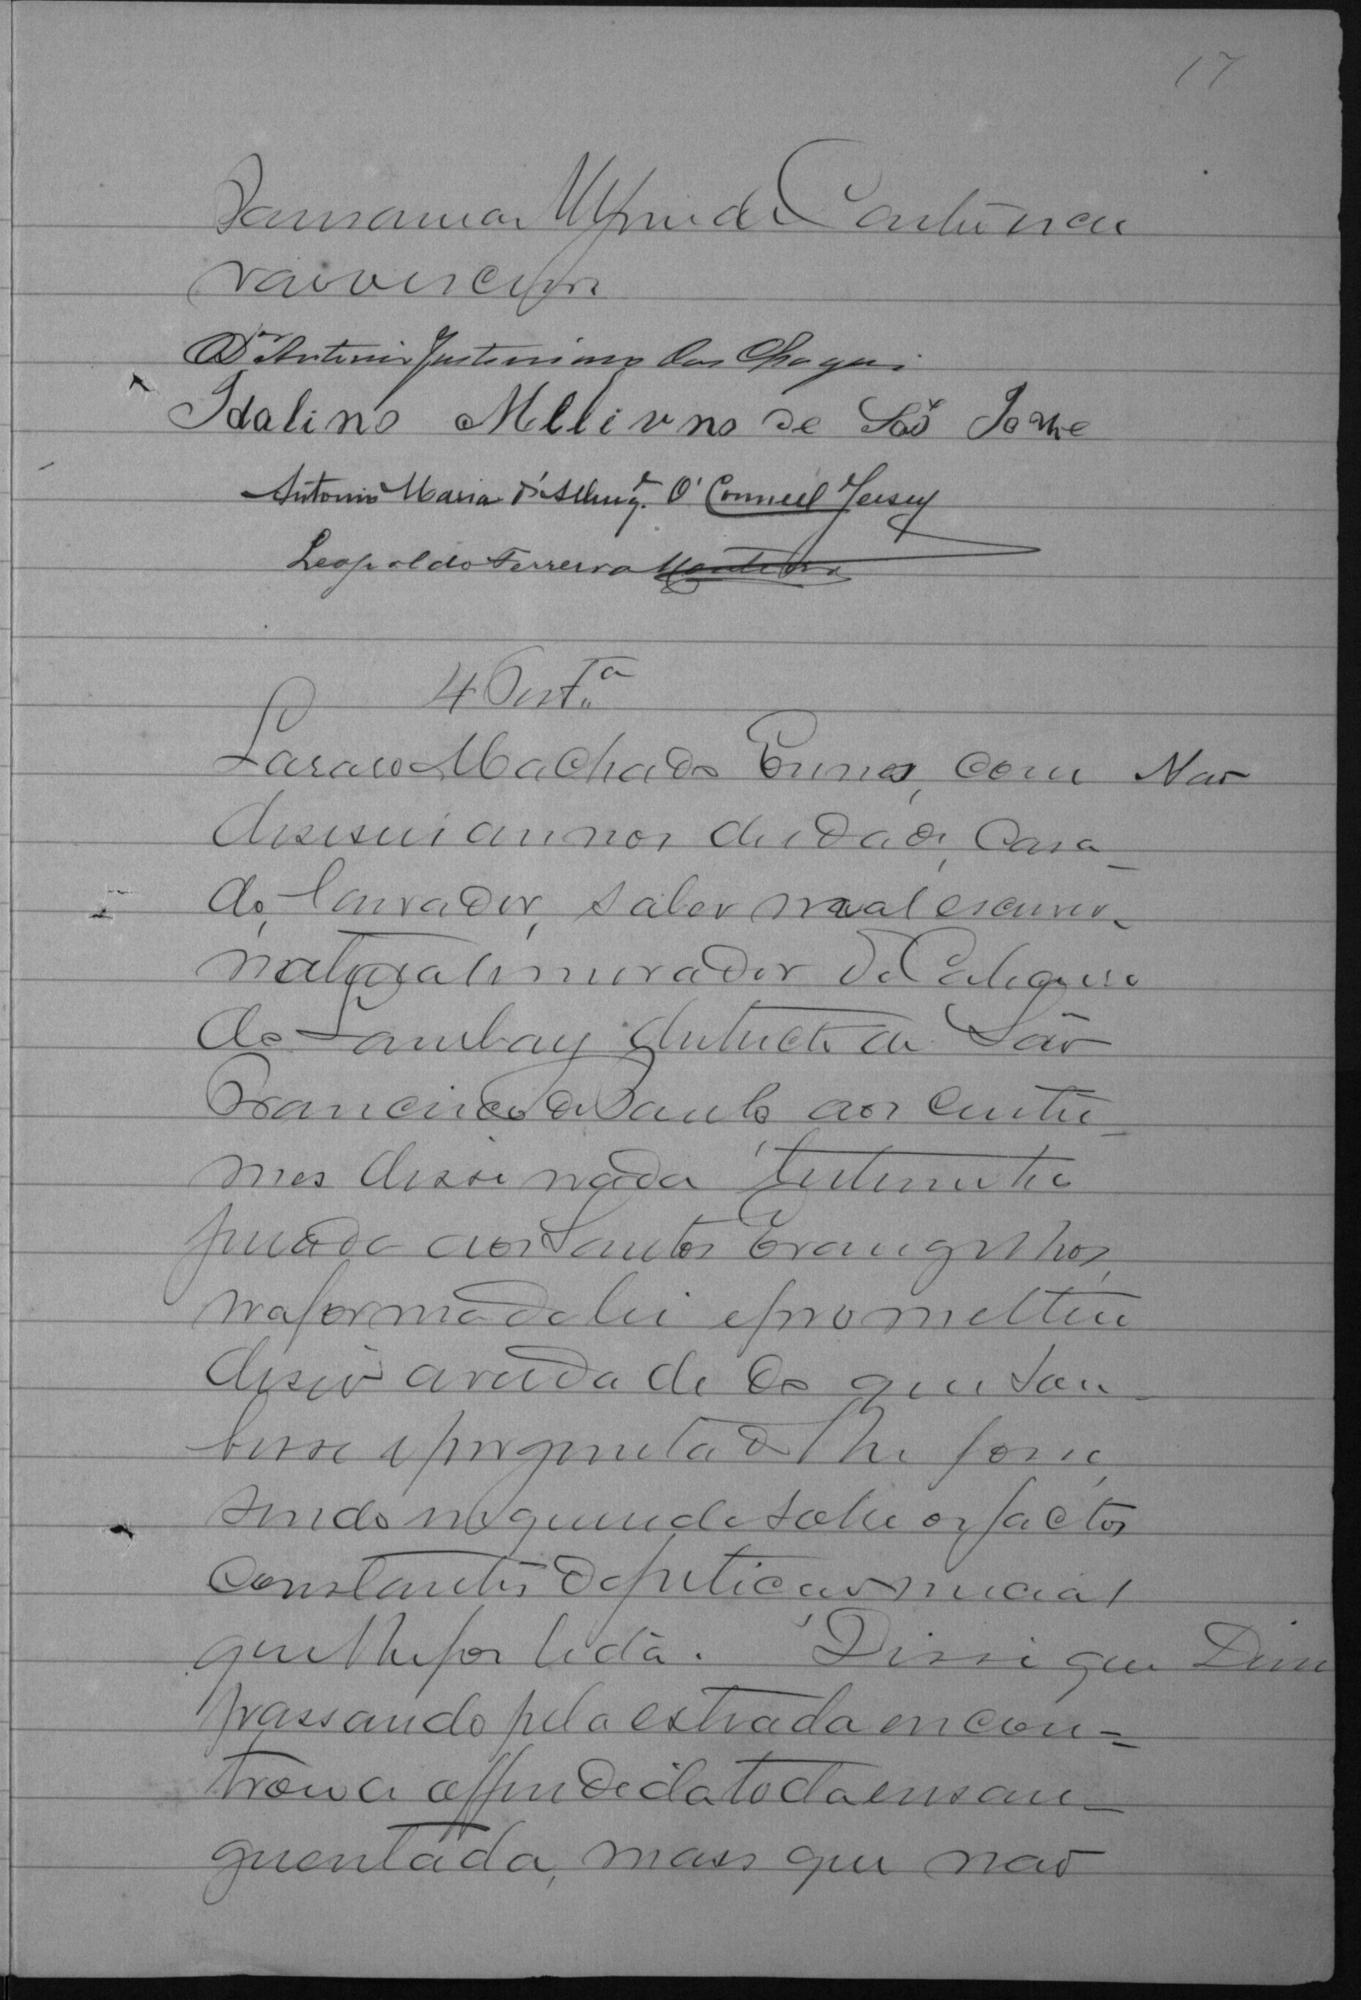 17
Antonio Justiniano das Chagas
Idalino de São Jorge
Antonio Maria O'Connell Jersey
Leopoldo Ferreira Monteiro
4 Test.ª
Lasaro Machado com Nao
diseseis annos de idade, casa_
do, lavrador, saber mal escrever,
natural e morador de
do Cambay districto de São
Francisco de Paula aos custu_
mes disse nada Testemunha
jurada aos Santos Evangelhos,
na forma da lei e prometteu
diser a verdade do que sou_
besse e perguntado lhe fosse,
sendo inquirida sobre os factos
constantes da petição inicial
que lhe foi lida. Disse que Disse
passando pela estrada encon=
trou a offendida toda ensan_
guentada, mas que não